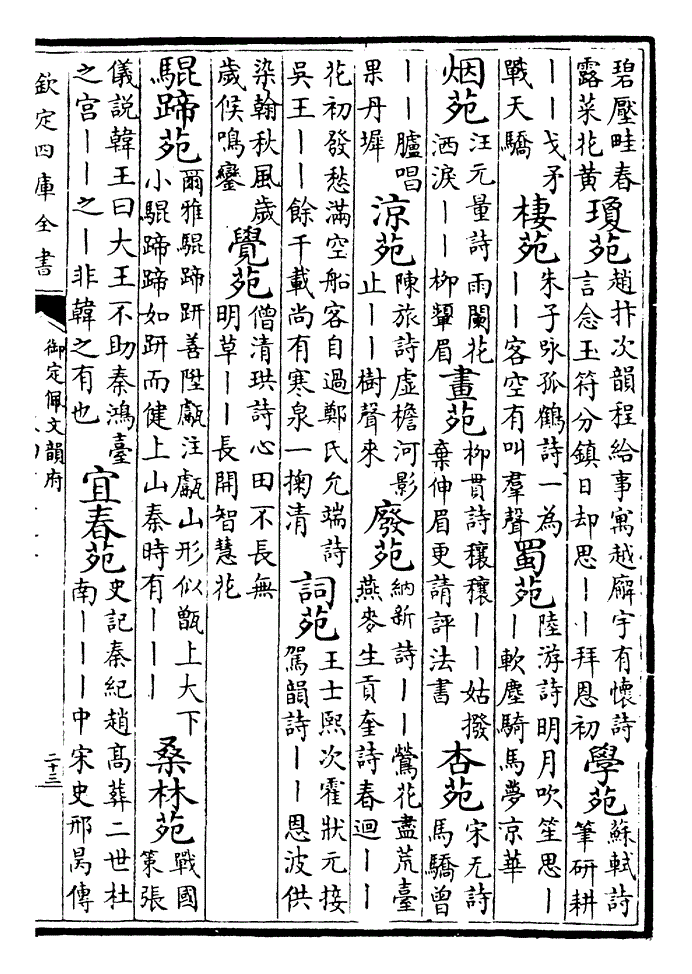 碧壓畦春露菜花黃 瓊苑 趙抃次韻程給事寓越廨宇有懷詩言念玉符分鎮日却思丨丨拜恩初 學苑 蘇軾詩筆研耕
丨丨戈矛戰天驕 棲苑 朱子咏孤鶴詩一為丨丨客空有叫羣聲 蜀苑 陸游詩明月吹笙思丨丨軟塵騎馬夢凉華
烟苑 汪元量詩雨闌花洒淚丨丨柳顰眉 畫苑 柳貫詩穰穰丨丨姑撥棄伸眉更請評法書 杏苑 宋无詩馬驕曾
丨丨臚唱果丹墀 涼苑 陳旅詩虛檐河影止丨丨樹聲來 廢苑 納新詩丨丨鶯花盡荒臺燕麥生貢奎詩春迴丨丨
花初發愁滿空船客自過鄭氏允端詩吳王丨丨餘千載尚有寒泉一掬清 詞苑 王士熙次霍狀元接駕韻詩丨丨恩波供
染翰秋風歲歲候鳴鑾 覺苑 僧清珙詩心田不長無明草丨丨長開智慧花
騉蹄苑 爾雅騉蹄趼善陞甗注甗山形似甑上大下小騉蹄蹄如趼而健上山秦時有丨丨丨 桑林苑 戰國策張
儀説韓王曰大王不助秦鴻臺之宫丨丨之丨非韓之有也 宜春苑 史記秦紀趙髙葬二世杜南丨丨丨中宋史邢昺傳
欽定四庫全書
御定佩文韻府
二十三